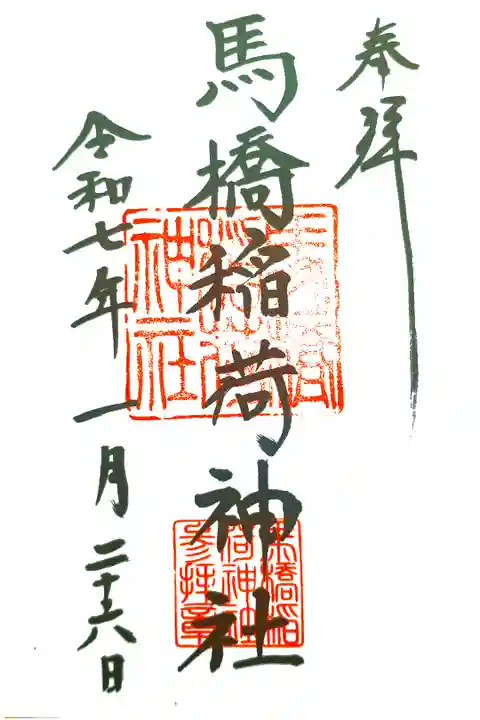 奉拝
馬橋稲荷神社
令和七年一月二十六日
馬橋稲荷神社
馬橋稲荷神社参拝章